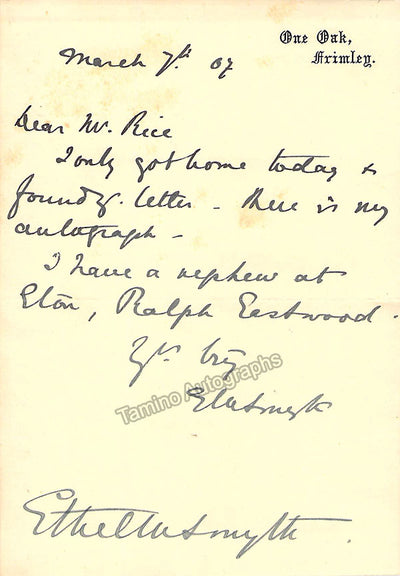 One Oak,
Frimley.
March 7th 07
Dear Mr. Rice
I only got home today &
found yr. letter - Here is my
autograph -
I have a nephew at
Eton, Ralph Eastwood.
Yrs try
EMSmyth
Tamino Autographs
Ethel M Smyth.